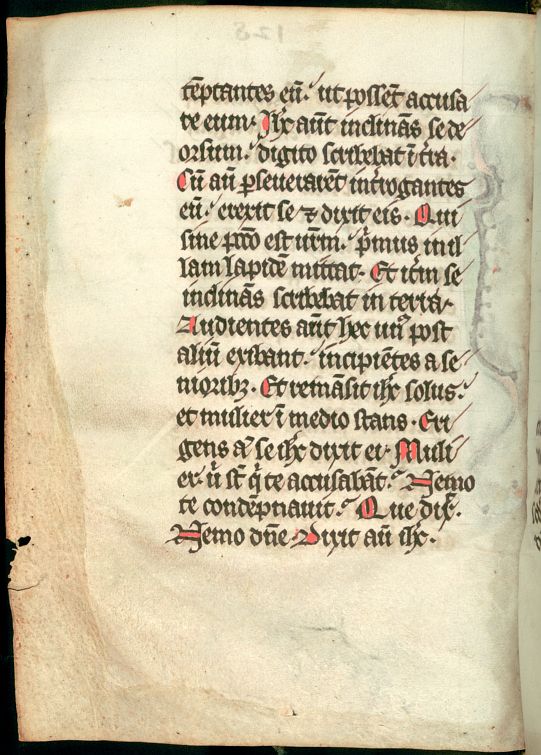 125
tēptantes eū. ut possēt accusa
re eum. Ihc aūt inclinās se de
orsum. digito scribebat ī tra.
Cū aū pseuerarēt introgantes
eū. erexit se ⁊ dixit eis. Qui
sine pctō est urm. pimus in il
lam lapidē mittat. Et itm se
inclinās scribebat in terra.
Audientes aūt hec un⁹ post
aliū exibant. incipiētes a se
nioribꝫ. Et remāsit ihc solus.
et mulier ī medio stans. Eri
gens a se ihc dixit ei. Muli
er. u st q te accusabāt. Nemo
te condēpnauit. Que dix.
Nemo dne. Dixit aū ihc.